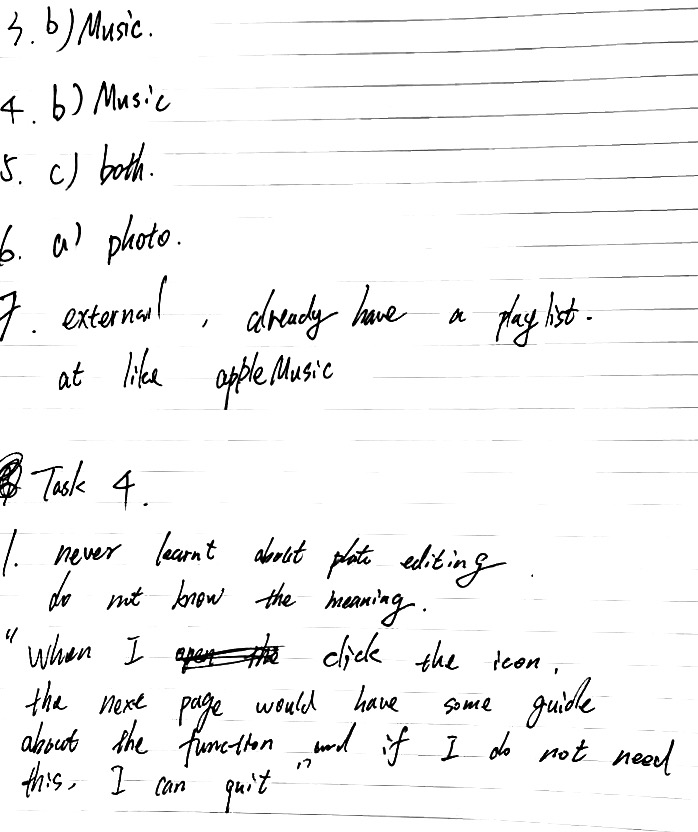 3. b) Music.
4. b) Music
5. c) both.
6. a) photo.
7. external, already have a playlist.
at like apple Music
Task 4.
1. never learnt about photo editing.
do not know the meaning.
"When I click the icon,
the next page would have some guide
about the function" and if I do not need
this, I can quit